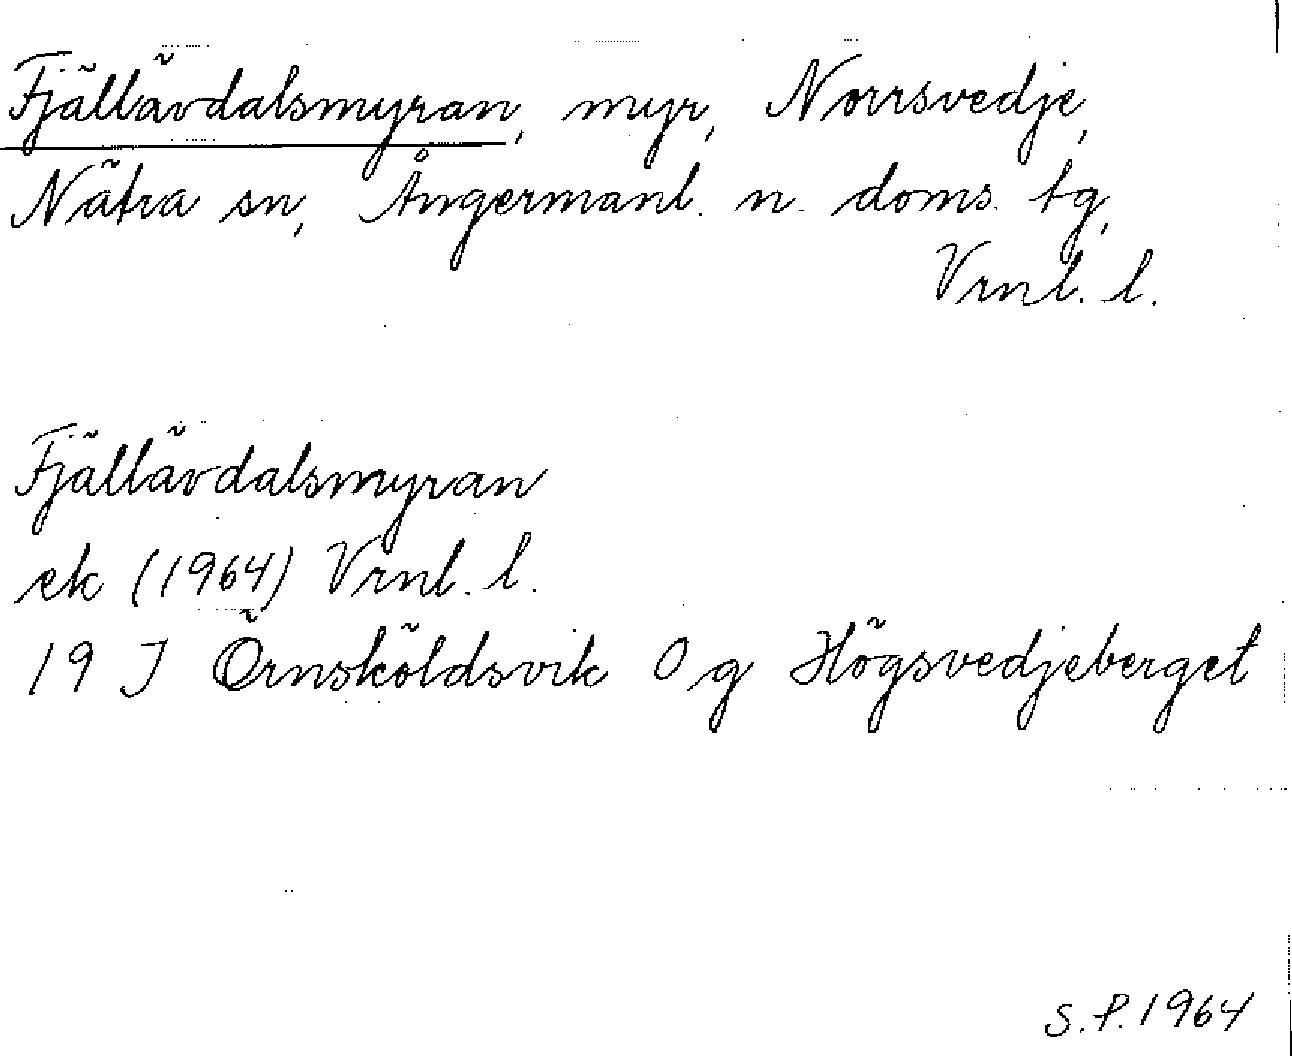 Fjällävdalsmyran, myr, Norrsvedje,
Nätra sn, Ångermanl. n. doms. tg,
Vrnl. l.
Fjällävdalsmyran
ek (1964) Vrnl. l.
19 J Örnsköldsvik 0 g Högsvedjeberget
S.P. 1964